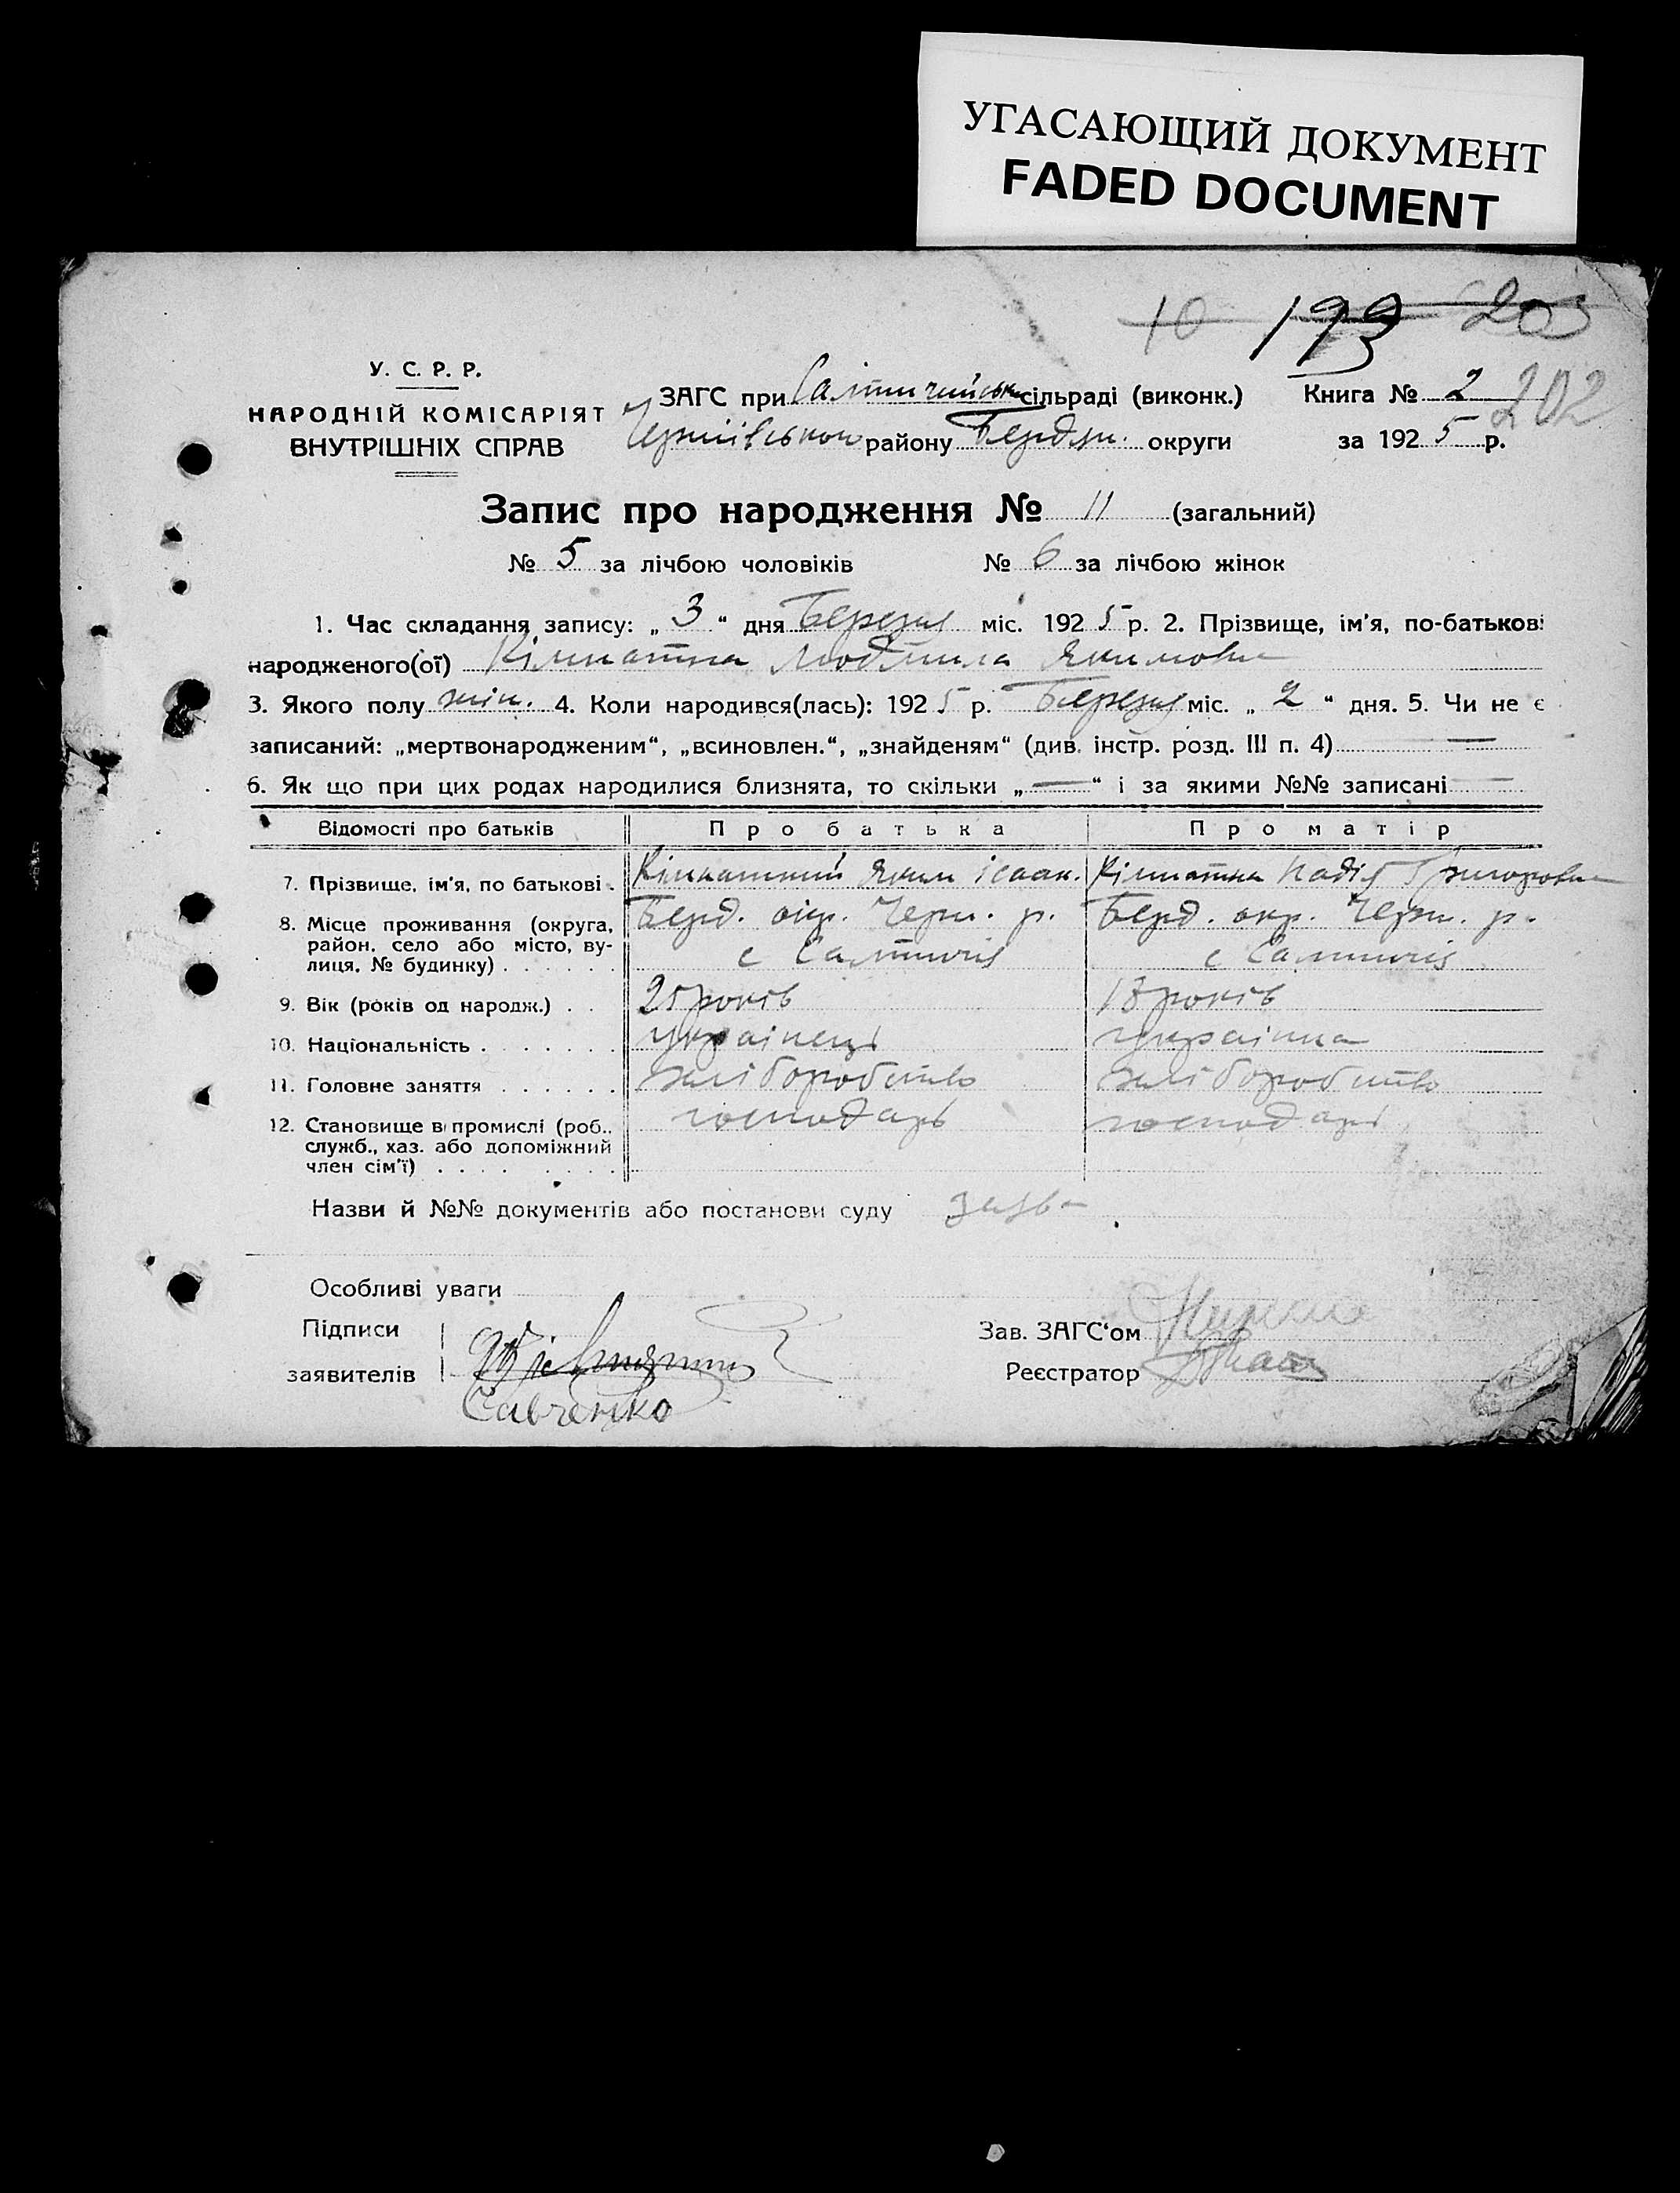 УГАСАЮЩИЙ ДОКУМЕНТ
FADED DOCUMENT
10 193 203
202
У. С. Р. Р.
НАРОДНІЙ КОМІСАРІЯТ
ВНУТРІШНІХ СПРАВ
ЗАГС при Салтичийськ. сільраді (виконк.) Книга № 2
району Бердян. округи за 1925 р.
Запис про народження № 11 (загальний)
№ 5 за лічбою чоловіків № 6 за лічбою жінок
1. Час складання запису: „ 3 “ дня Березня міс. 1925 р. 2. Прізвище, ім'я, по-батькові
народженого(ої) Кімнатна Людмила Якимовна
3. Якого полу жін. 4. Коли народився(лась): 1925 р. Березня міс. „ 2 “ дня. 5. Чи не є
записаний: „мертвонародженим“, „всиновлен.“, „знайденям“ (див. інстр. розд. III п. 4) —
6. Як що при цих родах народилися близнята, то скільки „ — “ і за якими №№ записані —
Відомості про батьків Про батька Про матір
7. Прізвище, ім'я, по батькові. Кімнатний Яким ісаак. Кімнатна Надія Григоровна
8. Місце проживання (округа, район, село або місто, ву-
лиця, № будинку) . . . . . .
Берд. окр. Черн. р. Берд. окр. Черн. р.
с Салтичія с Салтичія
9. Вік (років од народж.) . . 25 років 18 років
10. Національність . . . . . . . українець українка
11. Головне заняття . . . . . . хліборобство хліборобство
12. Становище в промислі (роб., господарь господарь
служб., хаз. або допоміжний
член сім'ї) . . . . . . . .
Назви й №№ документів або постанови суду заява
Особливі уваги
Підписи
заявителів
Савченко
Зав. ЗАГС‘ом
Реєстратор